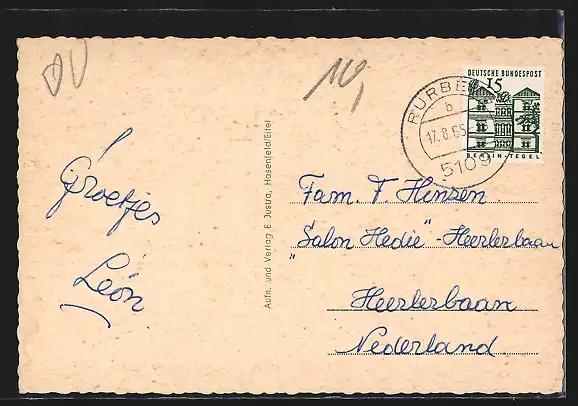 DV
10,
DEUTSCHE BUNDESPOST
15
BERLIN-TEGEL
RURBE
b
17.8.65
5109
Groetjes
Léon
Aufn. und Verlag E. Justra, Hasenfeld/Eifel
Fam. F. Hensen.
"Salon Hedie" - Heerlerbaan
Heerlerbaan
Nederland.